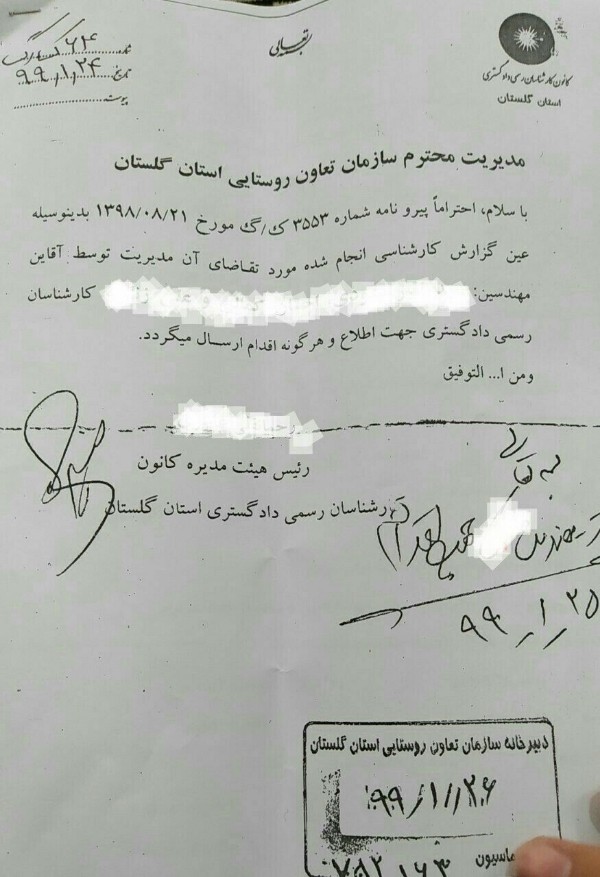 بسمه تعالی
کانون کارشناسان رسمی دادگستری
استان گلستان
شماره: ۶۴
تاریخ: ۹۹/۱/۲۴
پیوست:
مدیریت محترم سازمان تعاون روستایی استان گلستان
با سلام، احتراماً پیرو نامه شماره ۳۵۵۳ ک/گ مورخ ۱۳۹۸/۰۸/۲۱ بدینوسیله
عین گزارش کارشناسی انجام شده مورد تقاضای آن مدیریت توسط آقاین
مهندسین: کارشناسان
رسمی دادگستری جهت اطلاع و هرگونه اقدام ارسال میگردد.
ومن ا... التوفیق
رئیس هیئت مدیره کانون
کارشناسان رسمی دادگستری استان گلستان
۹۹/۱/۲۵
دبیرخانه سازمان تعاون روستایی استان گلستان
۹۹/۱/۲۶